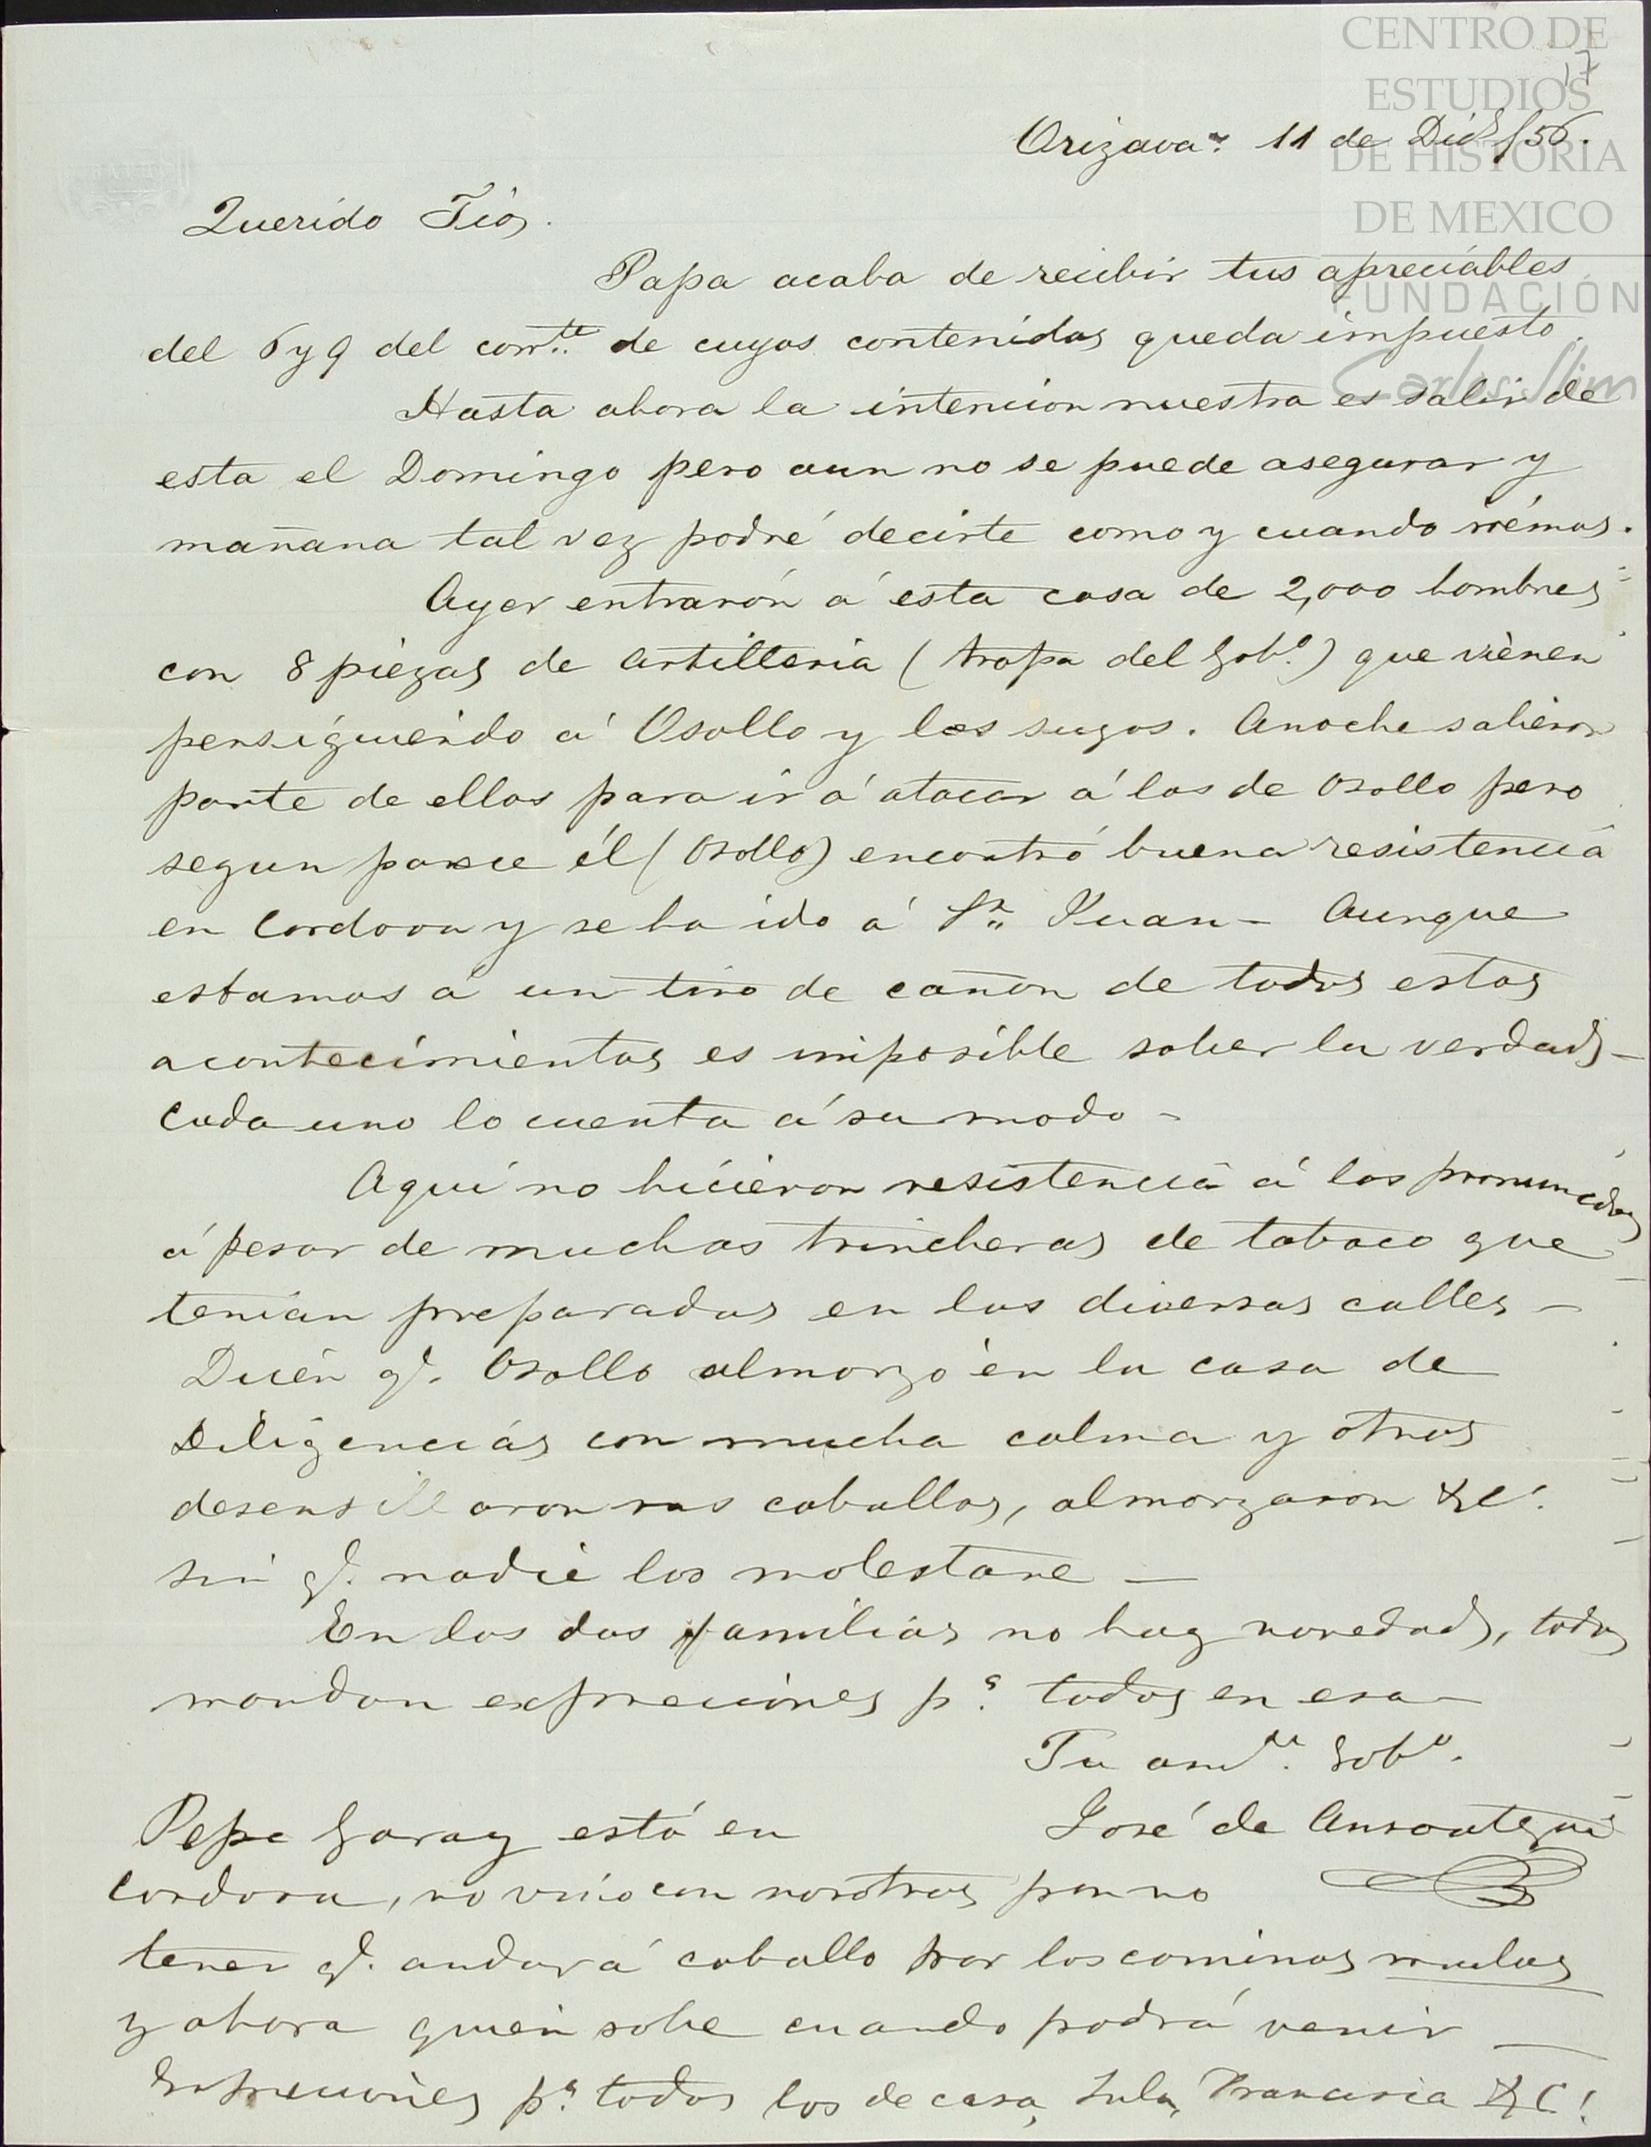 CENTRO DE
ESTUDIOS
DE HISTORIA
DE MEXICO
FUNDACIÓN
Carlos Slim
17
Orizava 11 de Dic /56.
Querido Tio,
Papa acaba de recibir tus apreciábles
del 6 y 9 del corrte de cuyos contenidos queda impuesto.
Hasta ahora la intencion nuestra es salir de
esta el Domingo pero aun no se puede asegurar y
mañana tal vez podré decirte como y cuando irémos.
Ayer entrarón á esta cosa de 2,000 hombres
con 8 piezas de artilleria (tropa del Gobo.) que viénen
persiguiendo á Osollo y los suyos. Anoche salieron
parte de ellos para ir á atacar á los de Osollo pero
segun parece él (Osollo) encontró buena resistencia
en Cordova y se ha ido á Sn. Juan - Aunque
estamos á un tiro de cañon de todos estos
acontecimientos es imposible saber la verdad -
Cada uno lo cuenta á su modo -
Aqui no hicieron resistencia á los pronuncdos
á pesar de muchas trincheras de tabaco que
tenian preparadas en las diversas calles -
Dicen q. Osollo almorzó en la casa de
Diligencias con mucha calma y otros
desensillaron sus caballos, almorzaron &c.
sin q. nadie los molestare —
En las dos familias no hay novedad, todos
mandan expreciones pa. todos en esa -
Tu amte. Sobo.
José de Ansoategui
Pepe Garay está en
Cordova, no vino con nosotros por no
tener q. andar á caballo por los caminos malos
y ahora quien sabe cuando podrá venir —
Expreciones pa. todos los de casa, Lula, Francisca &C.